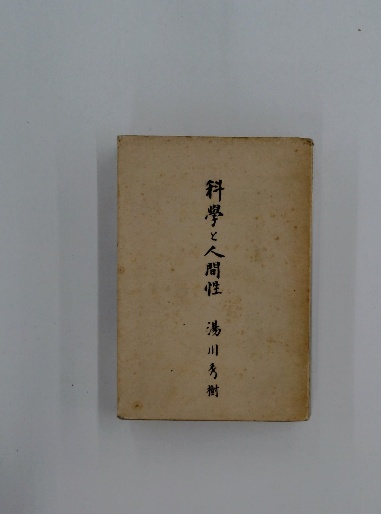 科學と人間性 湯川秀樹